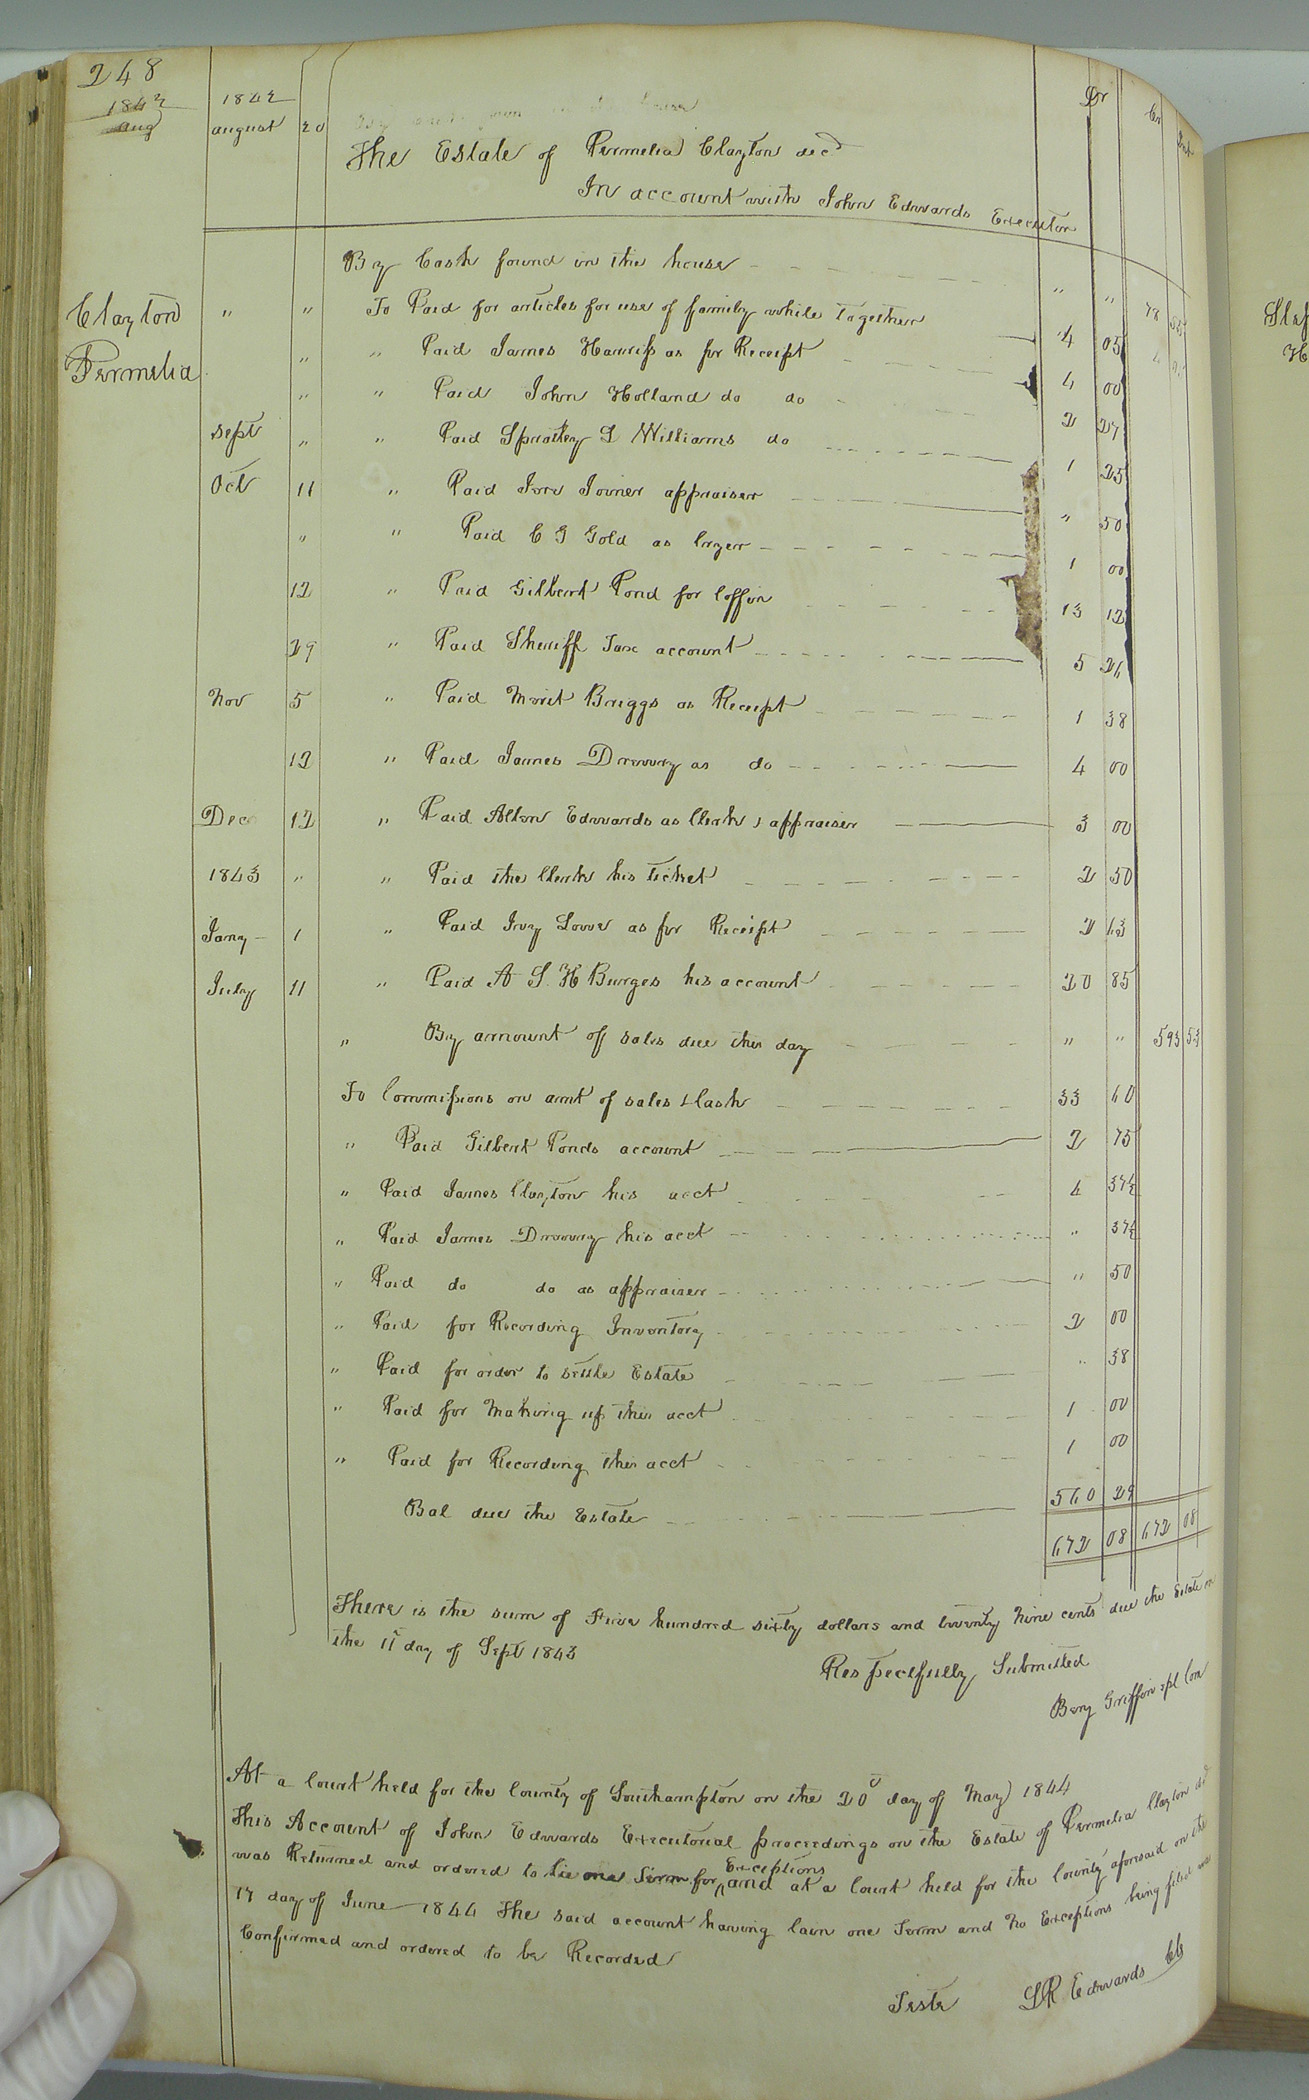 248
1842
Aug
1842
august 20
Dr Cr
The Estate of Permelia Clayton decd
In account with John Edwards Executor
Clayton
Permelia
By Cash found in the house " " 78 55
" " To Paid for articles for use of family while together 4 05
" " Paid James Harriss as per Receipt 4 00
" " Paid John Holland do do 2 27
Sept " " Paid Spratley L Williams do 1 25
Oct 11 " Paid Joiner appraiser " 50
" " Paid C G Gold as Cryer 1 00
12 " Paid Gilbert Pond for Coffin 13 12
29 " Paid Sheriff Tax account 5 26
Nov 5 " Paid Merit Briggs as Receipt 1 38
12 " Paid James Drewry as do 4 00
Dec 12 " Paid Allen Edwards as Clerk & appraiser 3 00
1843 " " Paid the Clerk his ticket 2 50
Jany 1 " Paid Ivy as per Receipt 2 63
July 11 " Paid A S. H Burges his account 20 85
" By amount of sales due this day " " 593 53
To Commissions on amt of sales & Cash 33 60
" Paid Gilbert Ponds account 2 75
" Paid James Clayton his acct 4 37½
" Paid James Drewry his acct " 37½
" Paid do do as appraiser " 50
" Paid for Recording Inventory 2 00
" Paid for order to settle Estate " 38
" Paid for Making up this acct 1 00
" Paid for Recording this acct 1 00
Bal due the Estate 560 29
672 08 672 08
There is the sum of Five hundred sixty dollars and twenty Nine cents due the Estate on
the 11 day of Sept 1843
Respectfully Submitted
Benj Griffin spl Com
At a Court held for the County of Southampton on the 20 day of May 1844
This Account of John Edwards Executorial proceedings on the Estate of Permelia Clayton decd
was Returned and ordered to lie one Term for Exceptions and at a Court held for the County aforesaid on the
17 day of June 1844 The said account having lain one Term and no Exceptions being filed was
Confirmed and ordered to be Recorded
Teste LR Edwards Clk